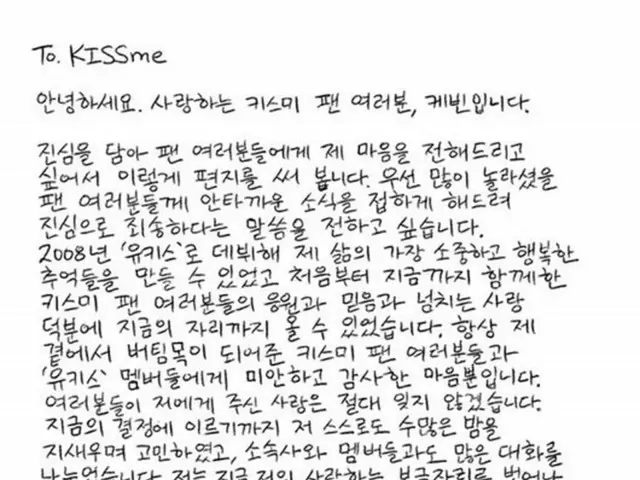 To. KISSme
안녕하세요. 사랑하는 키스미 팬 여러분, 케빈입니다.
진심을 담아 팬 여러분들에게 제 마음을 전해드리고
싶어서 이렇게 편지를 써 봅니다. 우선 많이 놀라셨을
팬 여러분들께 안타까운 소식을 접하게 해드려
진심으로 죄송하다는 말씀을 전하고 싶습니다.
2008년 '유키스'로 데뷔해 제 삶의 가장 소중하고 행복한
추억들을 만들 수 있었고 처음부터 지금까지 함께한
키스미 팬 여러분들의 응원과 믿음과 넘치는 사랑
덕분에 지금의 자리까지 올 수 있었습니다. 항상 제
곁에서 버팀목이 되어준 키스미 팬 여러분들과
'유키스' 멤버들에게 미안하고 감사한 마음뿐입니다.
여러분들이 저에게 주신 사랑은 절대 잊지 않겠습니다.
지금의 결정에 이르기까지 저 스스로도 수많은 밤을
지새우며 고민하였고, 소속사와 멤버들과도 많은 대화를
나누었습니다. 저는 지금 저의 사랑하는 보금자리를 벗어나